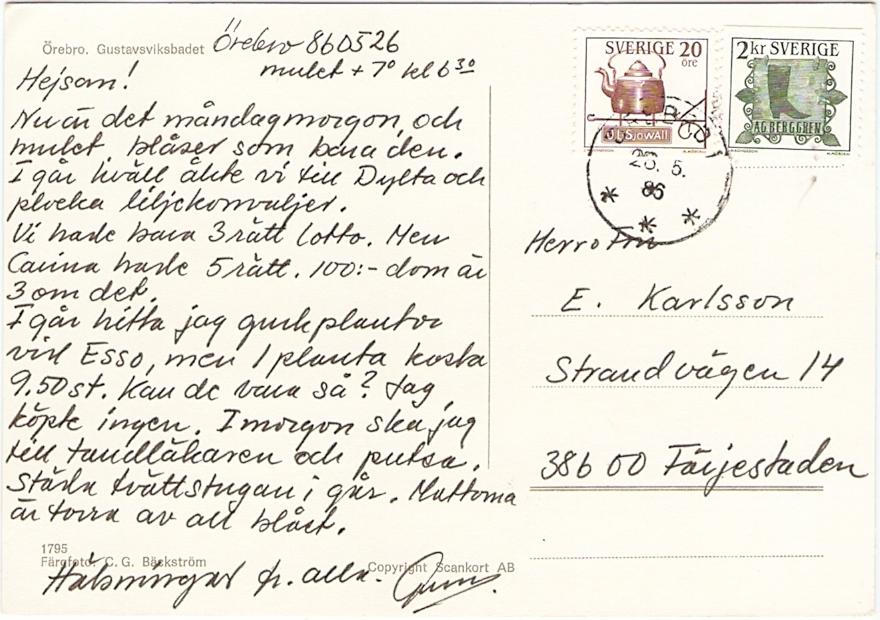 Örebro. Gustavsviksbadet
Örebro 860526
mulet + 7° kl 6 30
Hejsan!
Nu är det måndagmorgon, och
mulet, blåser som bara den.
I går kväll åkte vi till Dylta och
plocka liljekonvaljer.
Vi hade bara 3 rätt lotto. Men
Carina hade 5 rätt. 100:- dom är
3 om det.
I går hitta jag gurkplantor
vid Esso, men 1 planta kosta
9.50 st. Kan de vara så? Jag
köpte ingen. I morgon ska jag
till tandläkaren och putsa.
Städa tvättstugan i går. Mattorna
är torra av all blåst.
Hälsningar fr. alla.
1795
Färgfoto: C. G. Bäckström
Copyright Scankort AB
SVERIGE 20
öre
J L Sjöwall
2 kr SVERIGE
A.G. BERGGREN
ÖREBRO 1
5.
86
Herr o Fru
E. Karlsson
Strandvägen 14
386 00 Färjestaden